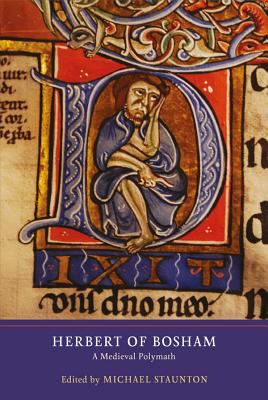 suu.
di
cent.
cor
D
IXIT
dno meo.
HERBERT OF BOSHAM
A Medieval Polymath
Edited by MICHAEL STAUNTON